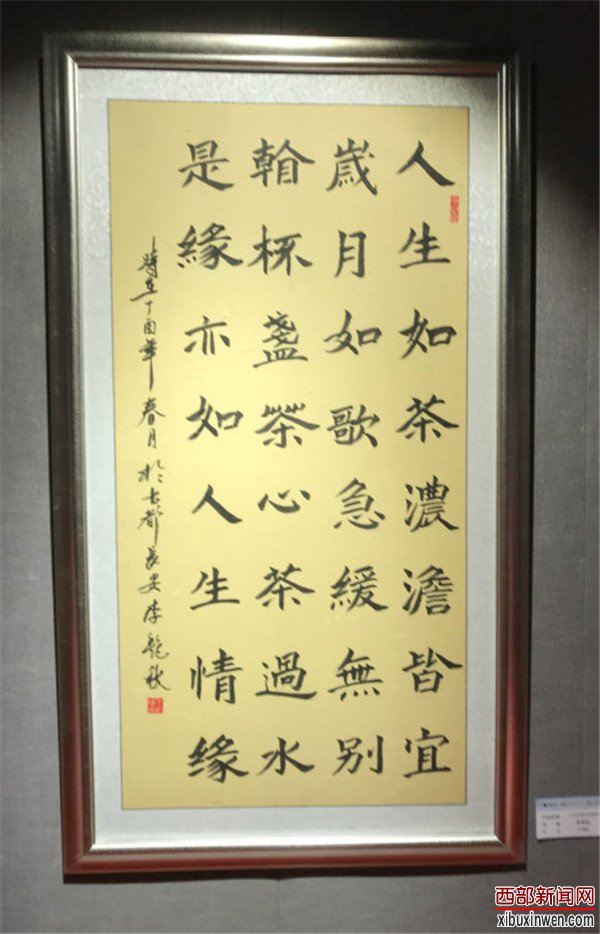 人生如茶濃澹皆宜
歲月如歌急緩無別
翰杯盞茶心茶過水
是緣亦如人生情缘
時在丁酉年春月於古都長安李艷秋
西部新闻网
xibuxinwen.com